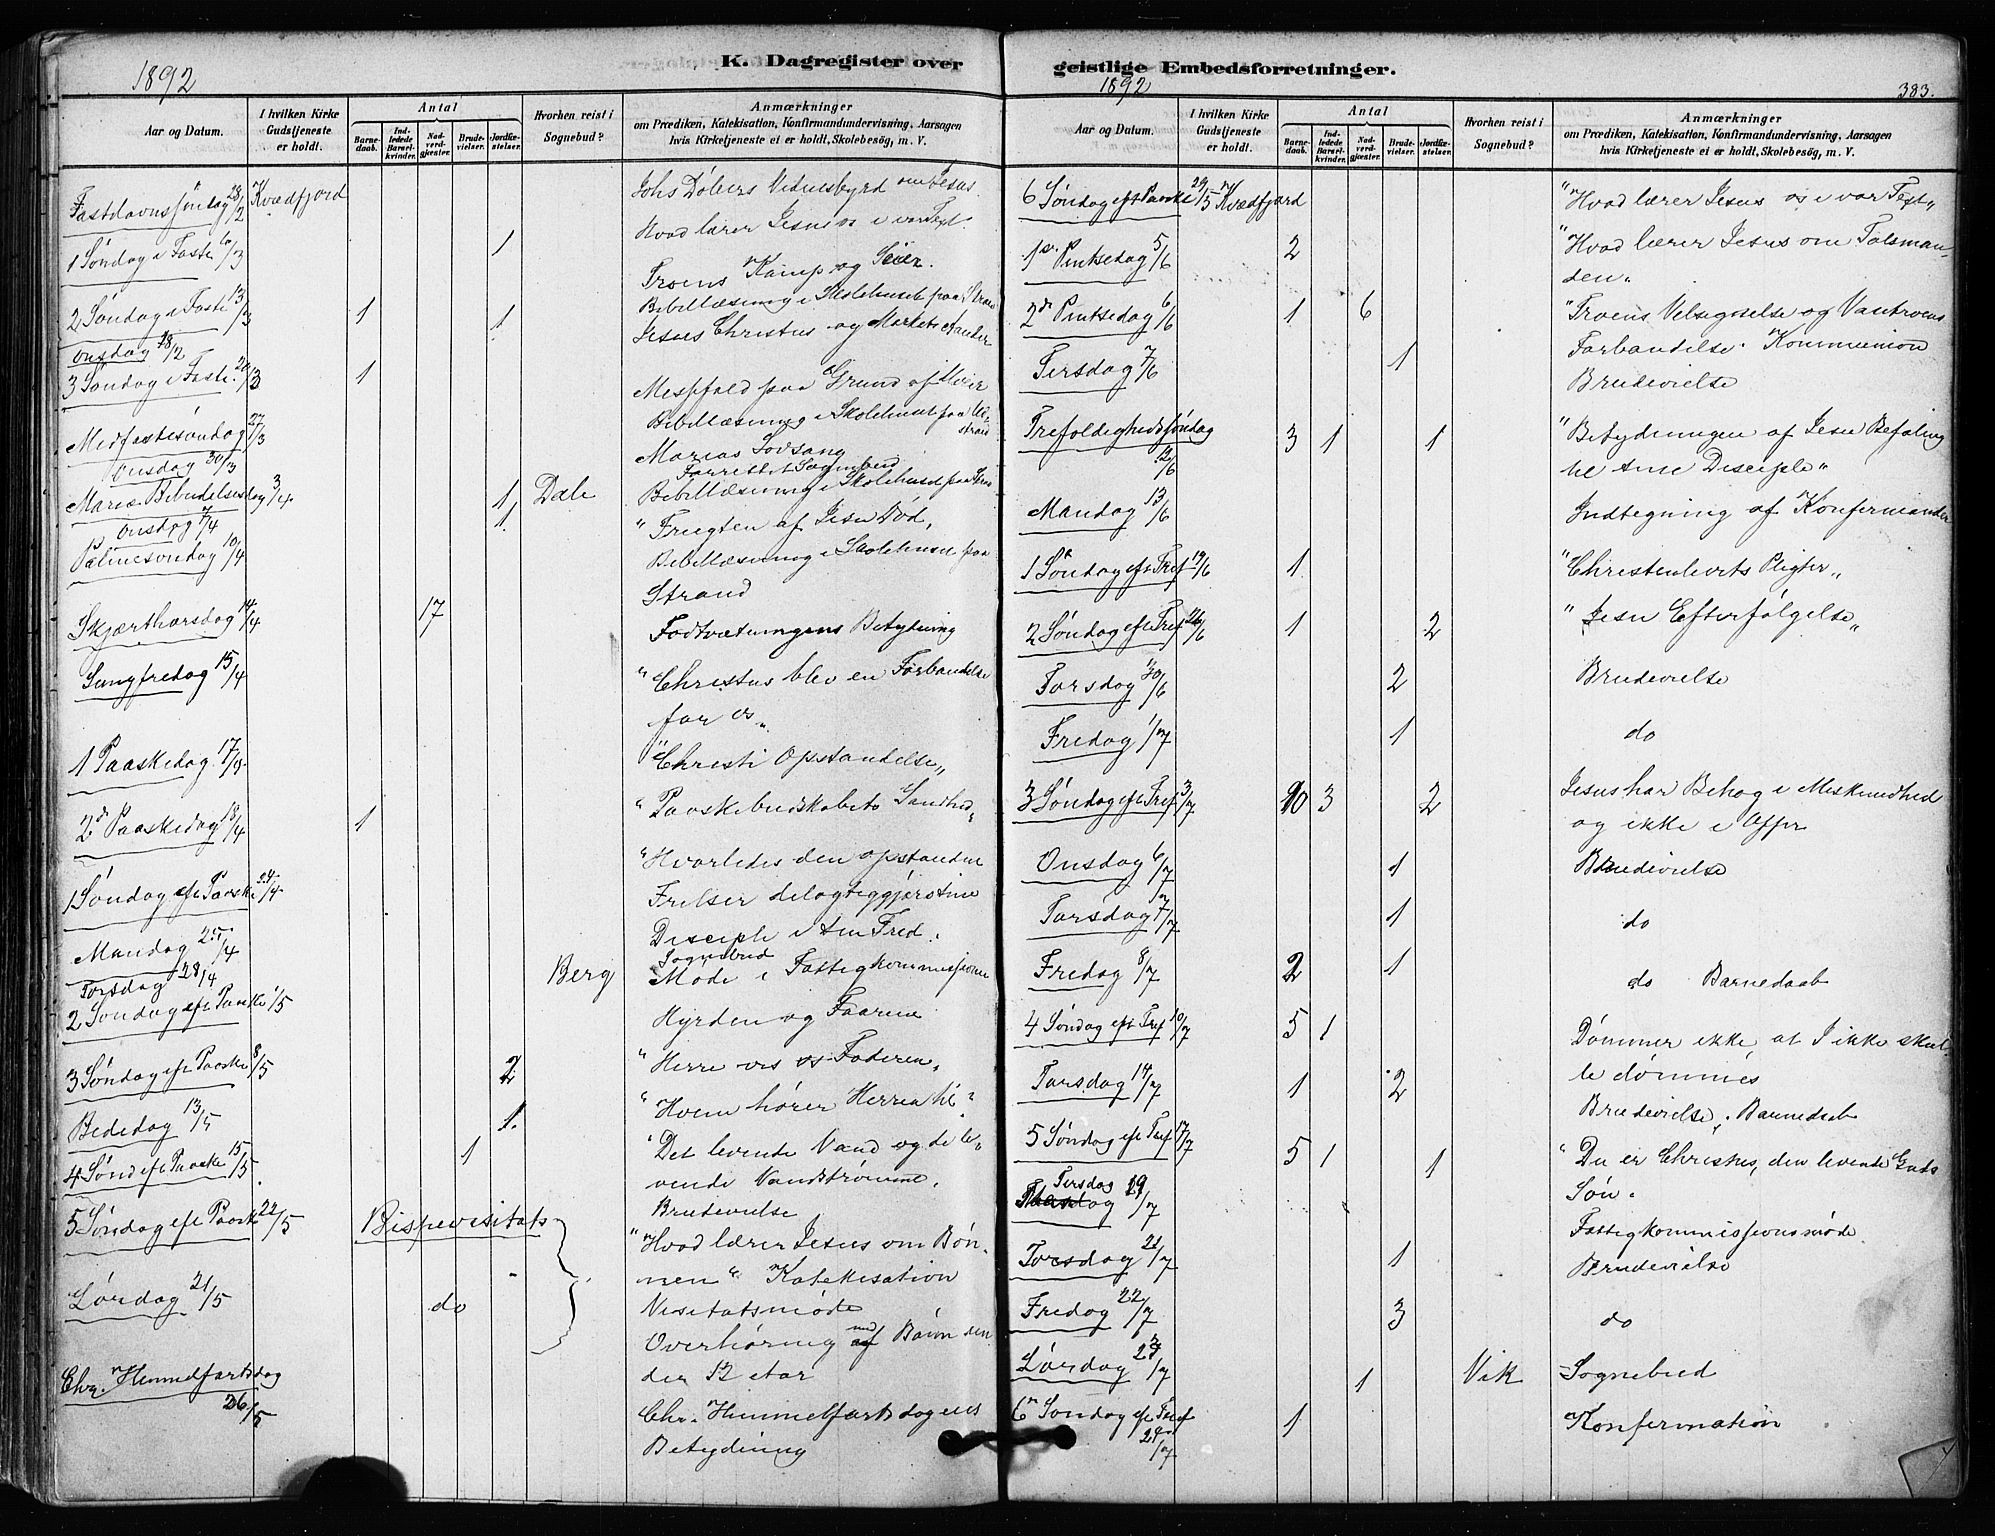 K. Dagregister over
1892
Aar og Datum.
I hvilken Kirke Gudstjeneste er holdt.
Antal
Barnedaab.
Indledede Barselkvinder.
Nadverdgjester.
Brudevielser.
Jordfæstelser.
Hvorhen reist i Sognebud?
Anmærkninger
om Prædiken, Katekisation, Konfirmandundervisning, Aarsagen
hvis Kirketjeneste ei er holdt, Skolebesög, m. V.
Fastelavnssöndag 28/2 Kvædfjord Johs Döbers Vidnesbyrd om Jesus
1 Söndag i Faste 6/3 1 Hvad lærer Jesus os i vor Text.
Troens Kamp og Seier.
2 Söndag i Faste 13/3 1 1 Bibellæsning i Skolehuset paa Strand
Jesus Christus og
Onsdag
3 Söndag i Faste 20/3 1 paa Grund af
Bibellæsning i Skolehuset paa
strand
Midfastesöndag 27/3
Onsdag 30/3 Marias Lovsang
Forrettet Sognebud
Mariæ Bebudelsesdag 3/4 1 Dale Bibellæsning i Skolehuset paa
Onsdag 7/4 1 "Frugten af Jesu Död,
Palmesöndag 10/4 Bibellæsning i Skolehuset paa
Strand
Skjærthorsdag 14/4 17 Fodtvætningens Betydning
Langfredag 15/4 "Christus blev en Forbandelse
for os"
1 Paaskedag 17/4 "Christi Opstandelse"
2d Paaskedag 18/4 1 "Paaskebudskabets Sandhed"
"Hvorledes den opstandne
1 Söndag eft Paaske 24/4 Frelser delagtiggjör sine
Disciple i sin Fred.
Mandag 25/4 Berg Sognebud
Torsdag 28/4 Möde i Fattigkommissionen
2 Söndag eft Paaske 1/5 Hyrden og Faarene
3 Söndag eft Paaske 8/5 2 "Herre vis os Faderen"
Bededag 13/5 1. "Hvem hörer Herren til?
4 Sönd eft Paaske 15/5 1 "Det levende Vand og de le-
vende Vandströmme.
5 Söndag eft Paaske 22/5 Bispevisitats Brudevielse
"Hvad lærer Jesus om Bön-
nen" Katekisation
Lördag 21/5 do Visitatsmöde
Overhöring af Börn
der 12 Aar
Chr. Himmelfartsdag
26/5 Chr. Himmelfartsdagens
Betydning
geistlige Embedsforretninger.
1892
383.
Aar og Datum.
I hvilken Kirke Gudstjeneste er holdt.
Antal
Barnedaab.
Indledede Barselkvinder.
Nadverdgjester.
Brudevielser.
Jordfæstelser.
Hvorhen reist i Sognebud?
Anmærkninger
om Prædiken, Katekisation, Konfirmandundervisning, Aarsagen
hvis Kirketjeneste ei er holdt, Skolebesög, m. V.
6 Söndag eft Paaske 29/5 Kvædfjord "Hvad lærer Jesus os i vor Text"
1ste Pintsedag 5/6 2 "Hvad lærer Jesus om Talsman-
den"
2de Pintsedag 6/6 1 6 "Troens Velsignelse og Vantroens
Forbandelse. Kommunion
Tirsdag 7/6 1 Brudevielse
Trefoldighedssöndag
12/6 3 1 1 "Betydningen af Jesu Befaling
til sine Disciple"
Mandag 13/6 Indtegning af Konfirmander
1 Söndag eft Tref 19/6 1 "Christenlivets Pligter"
2 Söndag eft Tref 26/6 1 2 "Jesu Efterfölgelse"
Torsdag 30/6 2 Brudevielse
Fredag 1/7 1 do
3 Söndag eft Tref 3/7 10 3 2 Jesus har Behag i Miskundhed
og ikke i Offer
Onsdag 6/7 1 Brudevielse
Torsdag 7/7 1 do
Fredag 8/7 2 1 do Barnedaab
4 Söndag eft Tref 10/7 5 1 Dömmer ikke, at I ikke skul-
le dömmes
Torsdag 14/7 1 2 Brudevielse, Barnedaab
5 Söndag eft Tref 17/7 5 1 1 "Du er Christus, den levende Guds
Sön.
Tirsdag 19/7 Fattigkommissionsmöde
Torsdag 21/7 1 Brudevielse
Fredag 22/7 3 do
Lördag 23/7 1 Vik Sognebud
6 Söndag eft Tref
24/7 1 Konfirmation